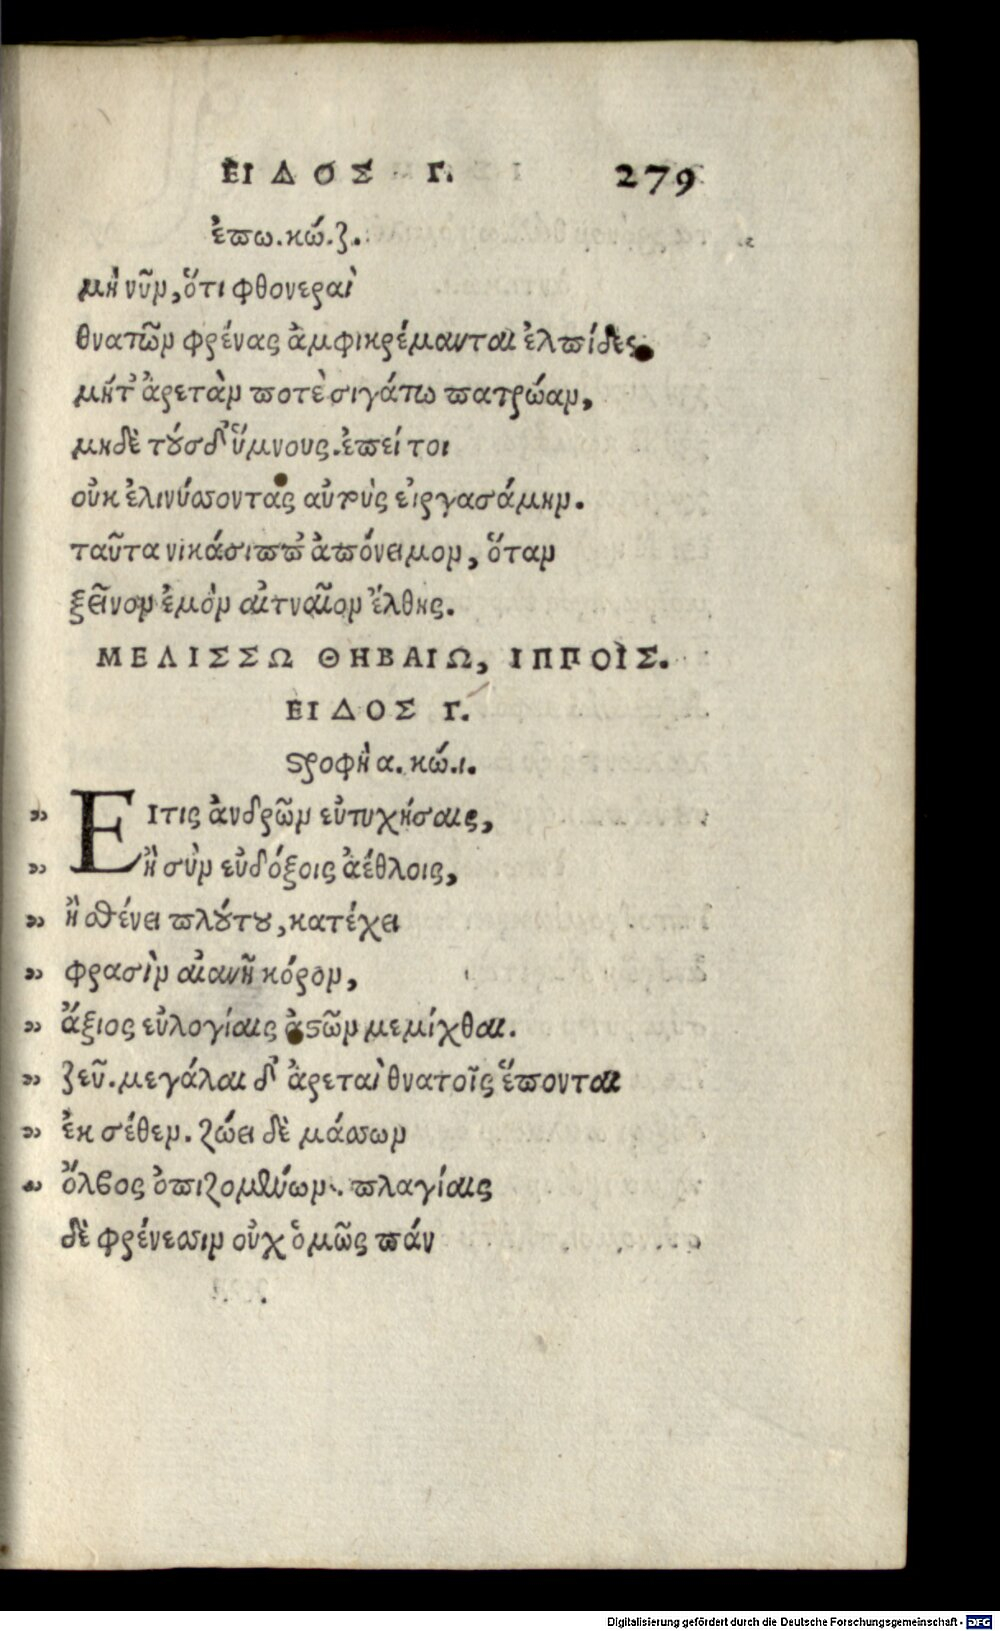 ΕΙΔΟΣ Γ. 279
ἐπω. κώ. ζ.
μὴ νῦν, ὅτι φθονεραὶ
θνατῶν φρένας ἀμφικρέμανται ἐλπίδες.
μήτ' ἀρετάν ποτὲ σιγάτω πατρῴαν,
μηδὲ τούσδ' ὕμνους. ἐπεί τοι
οὐκ ἐλινύσοντας αὐτοὺς εἰργασάμην.
ταῦτα νικάσιππ' ἀπόνειμον, ὅταν
ξεῖνον ἐμὸν αἰτναῖον ἔλθῃς.
ΜΕΛΙΣΣΩ ΘΗΒΑΙΩ, ΙΠΠΟΙΣ.
ΕΙΔΟΣ Γ.
στροφὴ α. κώ. ι.
" ΕΙτις ἀνδρῶν εὐτυχήσαις,
" ἢ σὺν εὐδόξοις ἀέθλοις,
" ἢ σθένει πλούτου, κατέχει
" φρασὶν αἰανῆ κόρον,
" ἄξιος εὐλογίαις ἀστῶν μεμίχθαι.
" ζεῦ. μεγάλαι δ' ἀρεταὶ θνατοῖς ἕπονται
" ἐκ σέθεν. ζώει δὲ μάσσων
" ὄλβος ὀπιζομένων. πλαγίαις
δὲ φρένεσσιν οὐχ ὁμῶς πάν
Digitalisierung gefördert durch die Deutsche Forschungsgemeinschaft - DFG